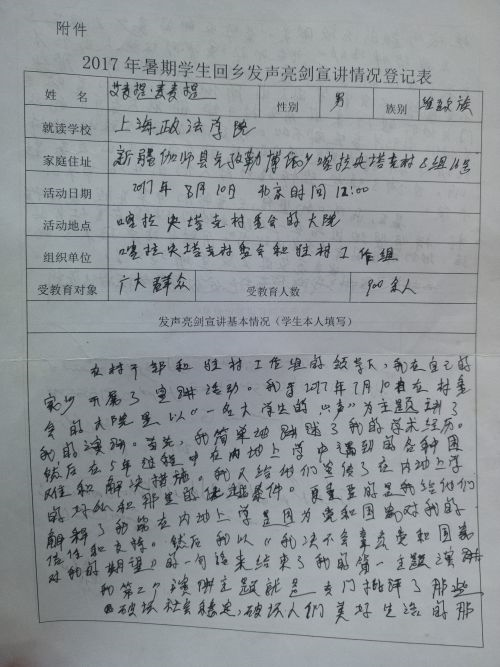 附件
2017年暑期学生回乡发声亮剑宣讲情况登记表
姓 名 艾麦提·麦麦提 性别 男 族别 维吾尔族
就读学校 上海政法学院
家庭住址 新疆伽师县克孜勒博依乡喀拉央塔克村8组
活动日期 2017年 8月10日 北京时间 12:00
活动地点 喀拉央塔克村委会的大院
组织单位 喀拉央塔克村委会和驻村工作组
受教育对象 广大群众 受教育人数 900余人
发声亮剑宣讲基本情况（学生本人填写）
在村干部和驻村工作组的领导下,我在自己的
家乡开展了宣讲活动。我于2017年 月10日在村委
会的大院里以《一名大学生的心声》为主题讲了
我的演讲。首先,我简单地讲述了我的学术经历。
然后在5年 程中在内地上学中遇到的各种困
难和解决措施。我又给他们宣传了在内地上学
的好处和那里的 条件。更重要的是我给他们
解释了我能在内地上学是因为党和国家对我的
信任和支持。然后我以《我决不会辜负党和国家
对我的期望》的一句话来结束了我的第一主题演讲
我第二个演讲主题就是 专门批评了那些
破坏社会稳定,破坏人们美好生活的那